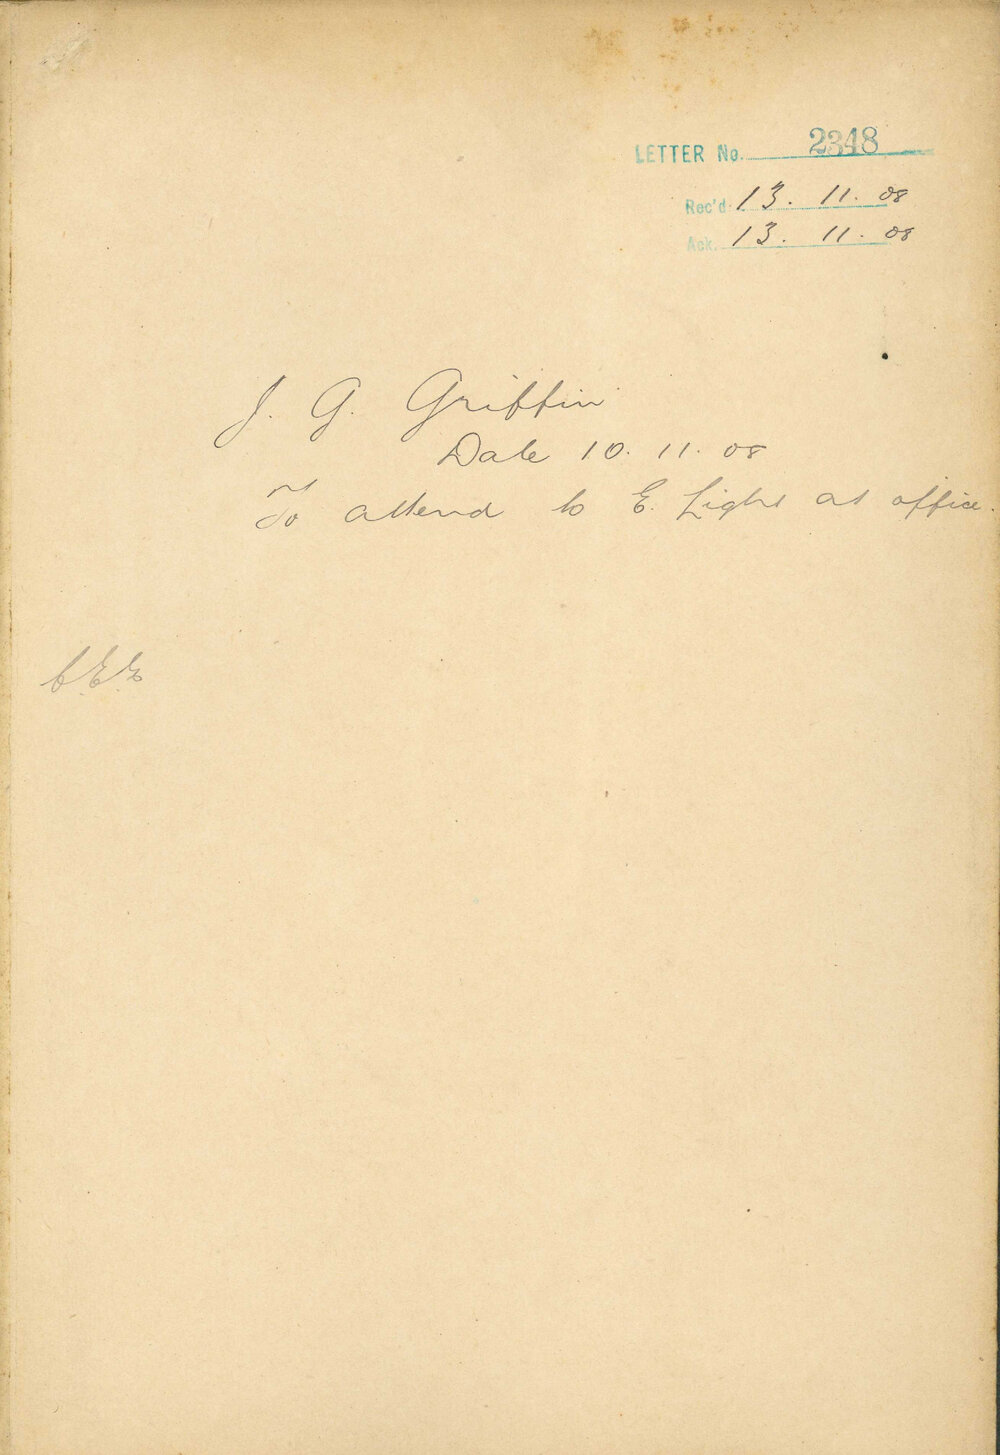 LETTER No. 2348
Rec'd 13. 11. 08
Ack. 13. 11. 08
J. G. Griffin
Date 10. 11. 08
To attend to E. Light at office.
C.E.E